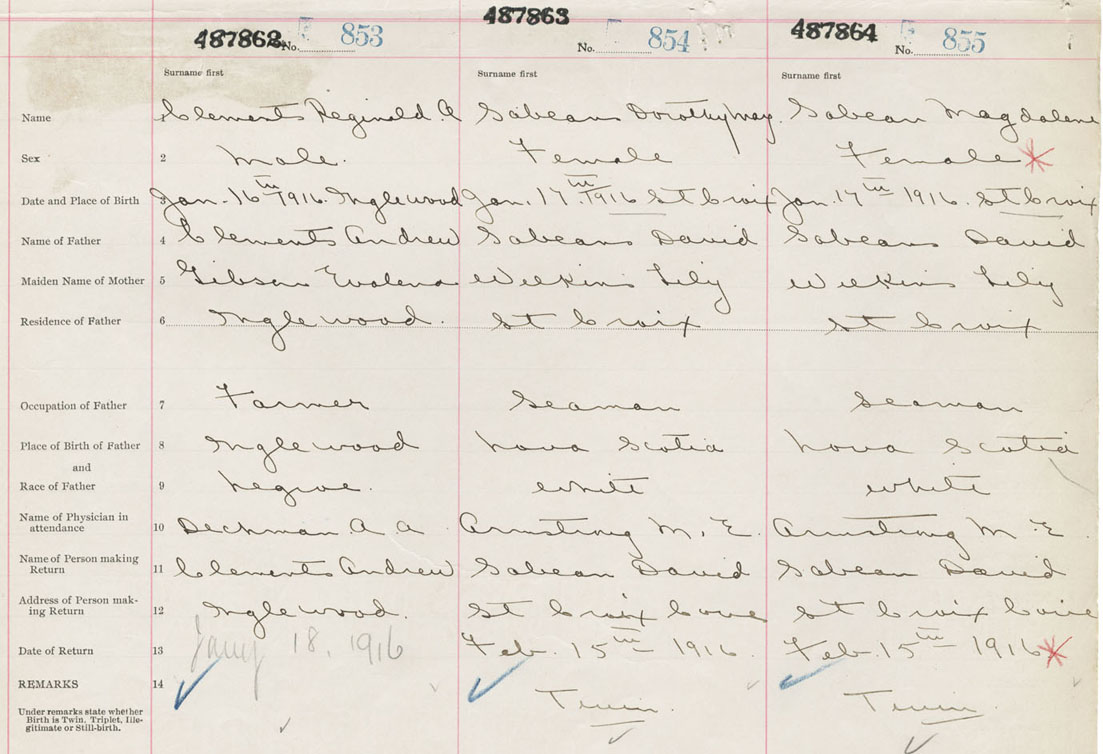 487862 No. 853 487863 No. 854 487864 No. 855
Surname first Surname first Surname first
Name 1 Clements Reginald A Sabeans Dorothy May. Sabean Magdalene
Sex 2 Male. Female Female
Date and Place of Birth 3 Jan. 16th 1916. Inglewood Jan. 17th 1916 St Croix Jan. 17th 1916. St Croix
Name of Father 4 Clements Andrew Sabeans David Sabeans David
Maiden Name of Mother 5 Gibson Evalena Wilkins Lily Wilkins Lily
Residence of Father 6 Inglewood. St Croix St Croix
Occupation of Father 7 Farmer Seaman Seaman
Place of Birth of Father 8 Inglewood Nova Scotia Nova Scotia
and
Race of Father 9 Negroe. White White
Name of Physician in
attendance 10 Deckman A A Armstrong M. E. Armstrong M E.
Name of Person making
Return 11 Clements Andrew Sabean David Sabean David
Address of Person mak-
ing Return 12 Inglewood. St Croix Cove St Croix Cove
Date of Return 13 Jany 18, 1916 Feb. 15th 1916. Feb. 15th 1916
REMARKS 14 Twin. Twin.
Under remarks state whether
Birth is Twin, Triplet, Ille-
gitimate or Still-birth.